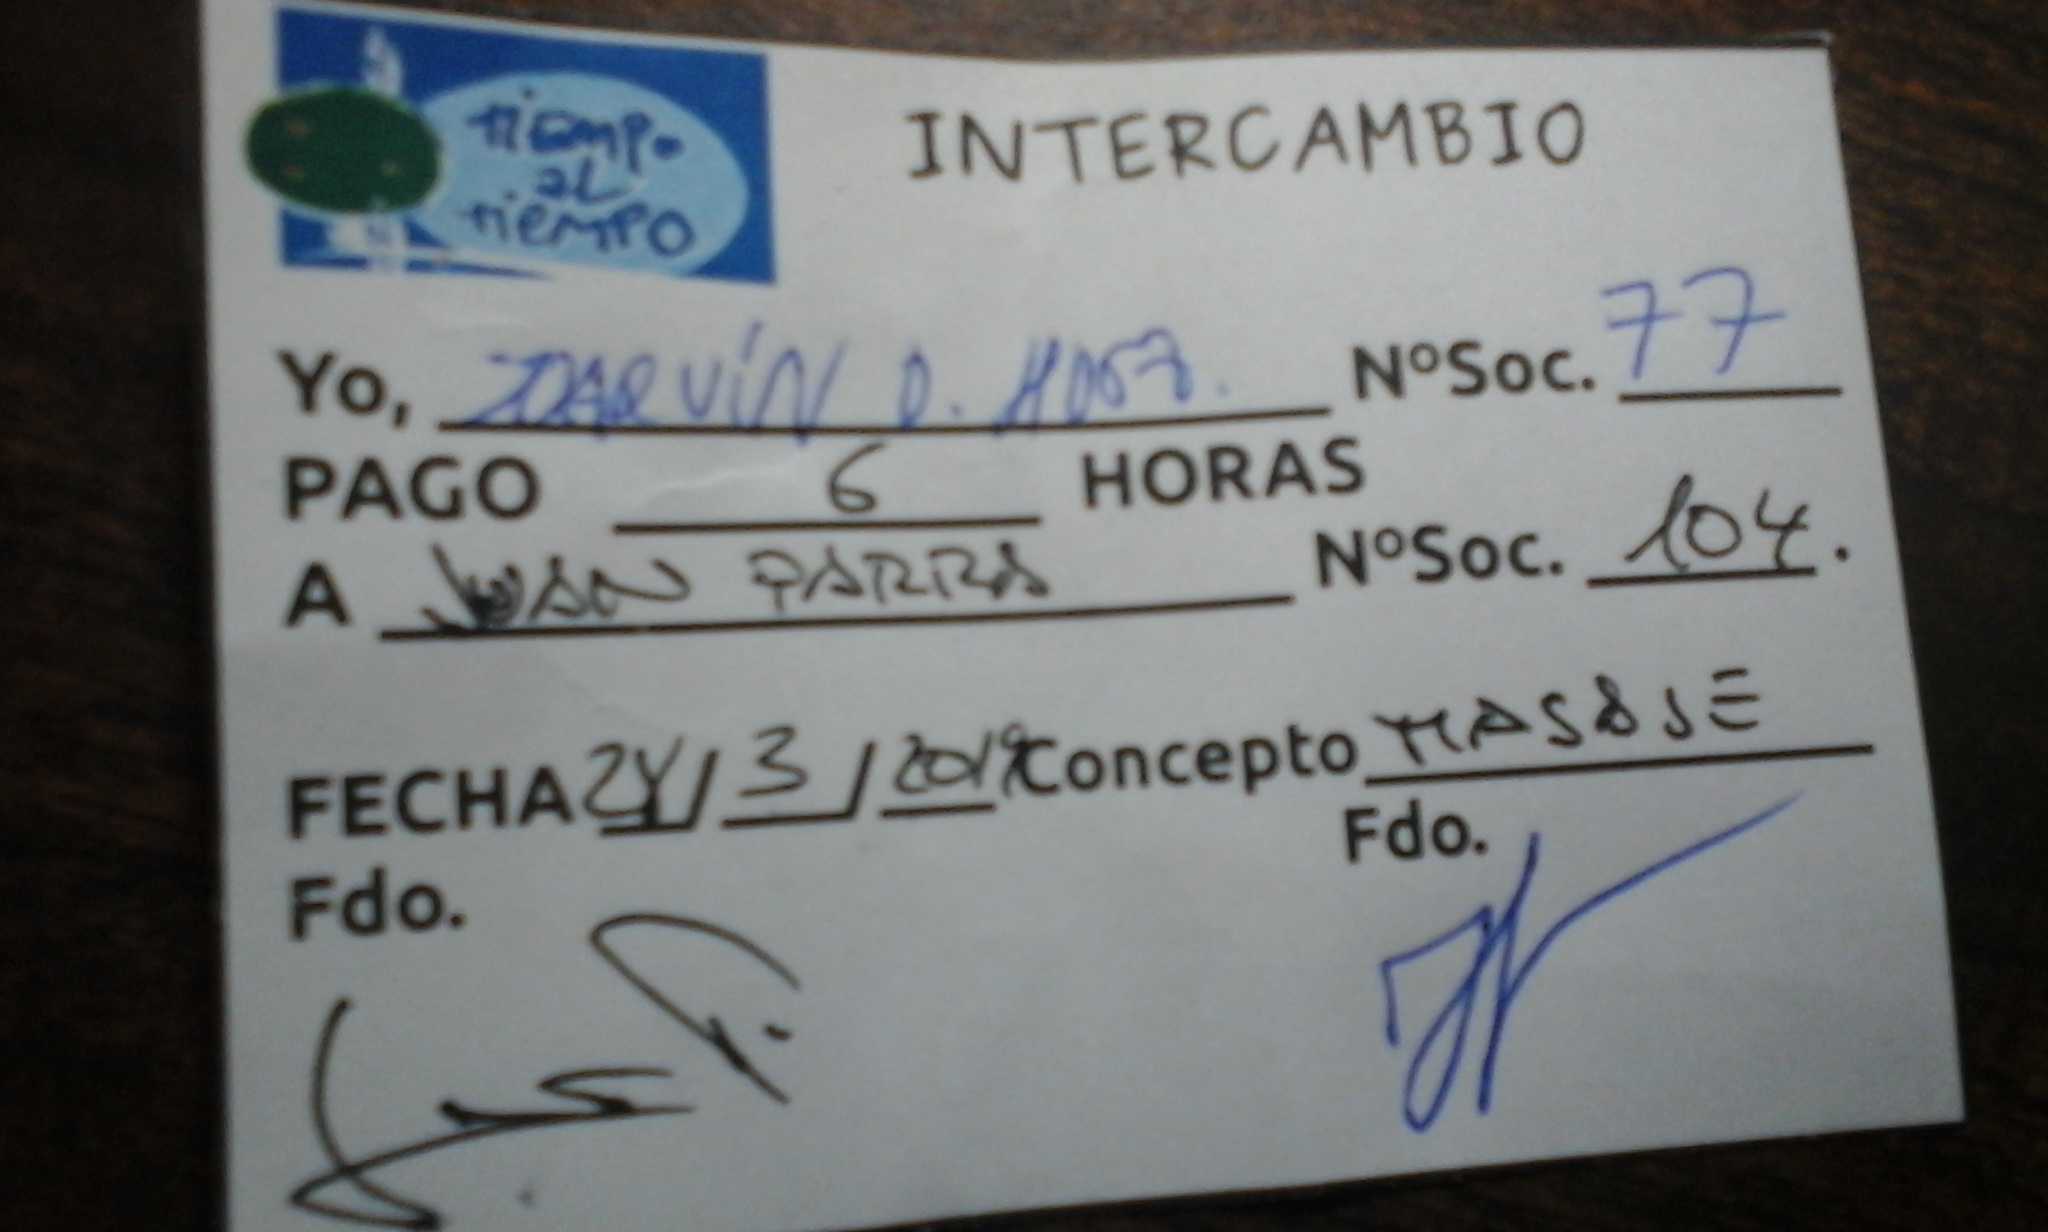 tiempo
al
tiempo
INTERCAMBIO
Yo, D. NºSoc. 77
PAGO 6 HORAS
A JUAN PARRA NºSoc. 104.
FECHA 24/3/2019 Concepto MASAJE
Fdo.
Fdo.